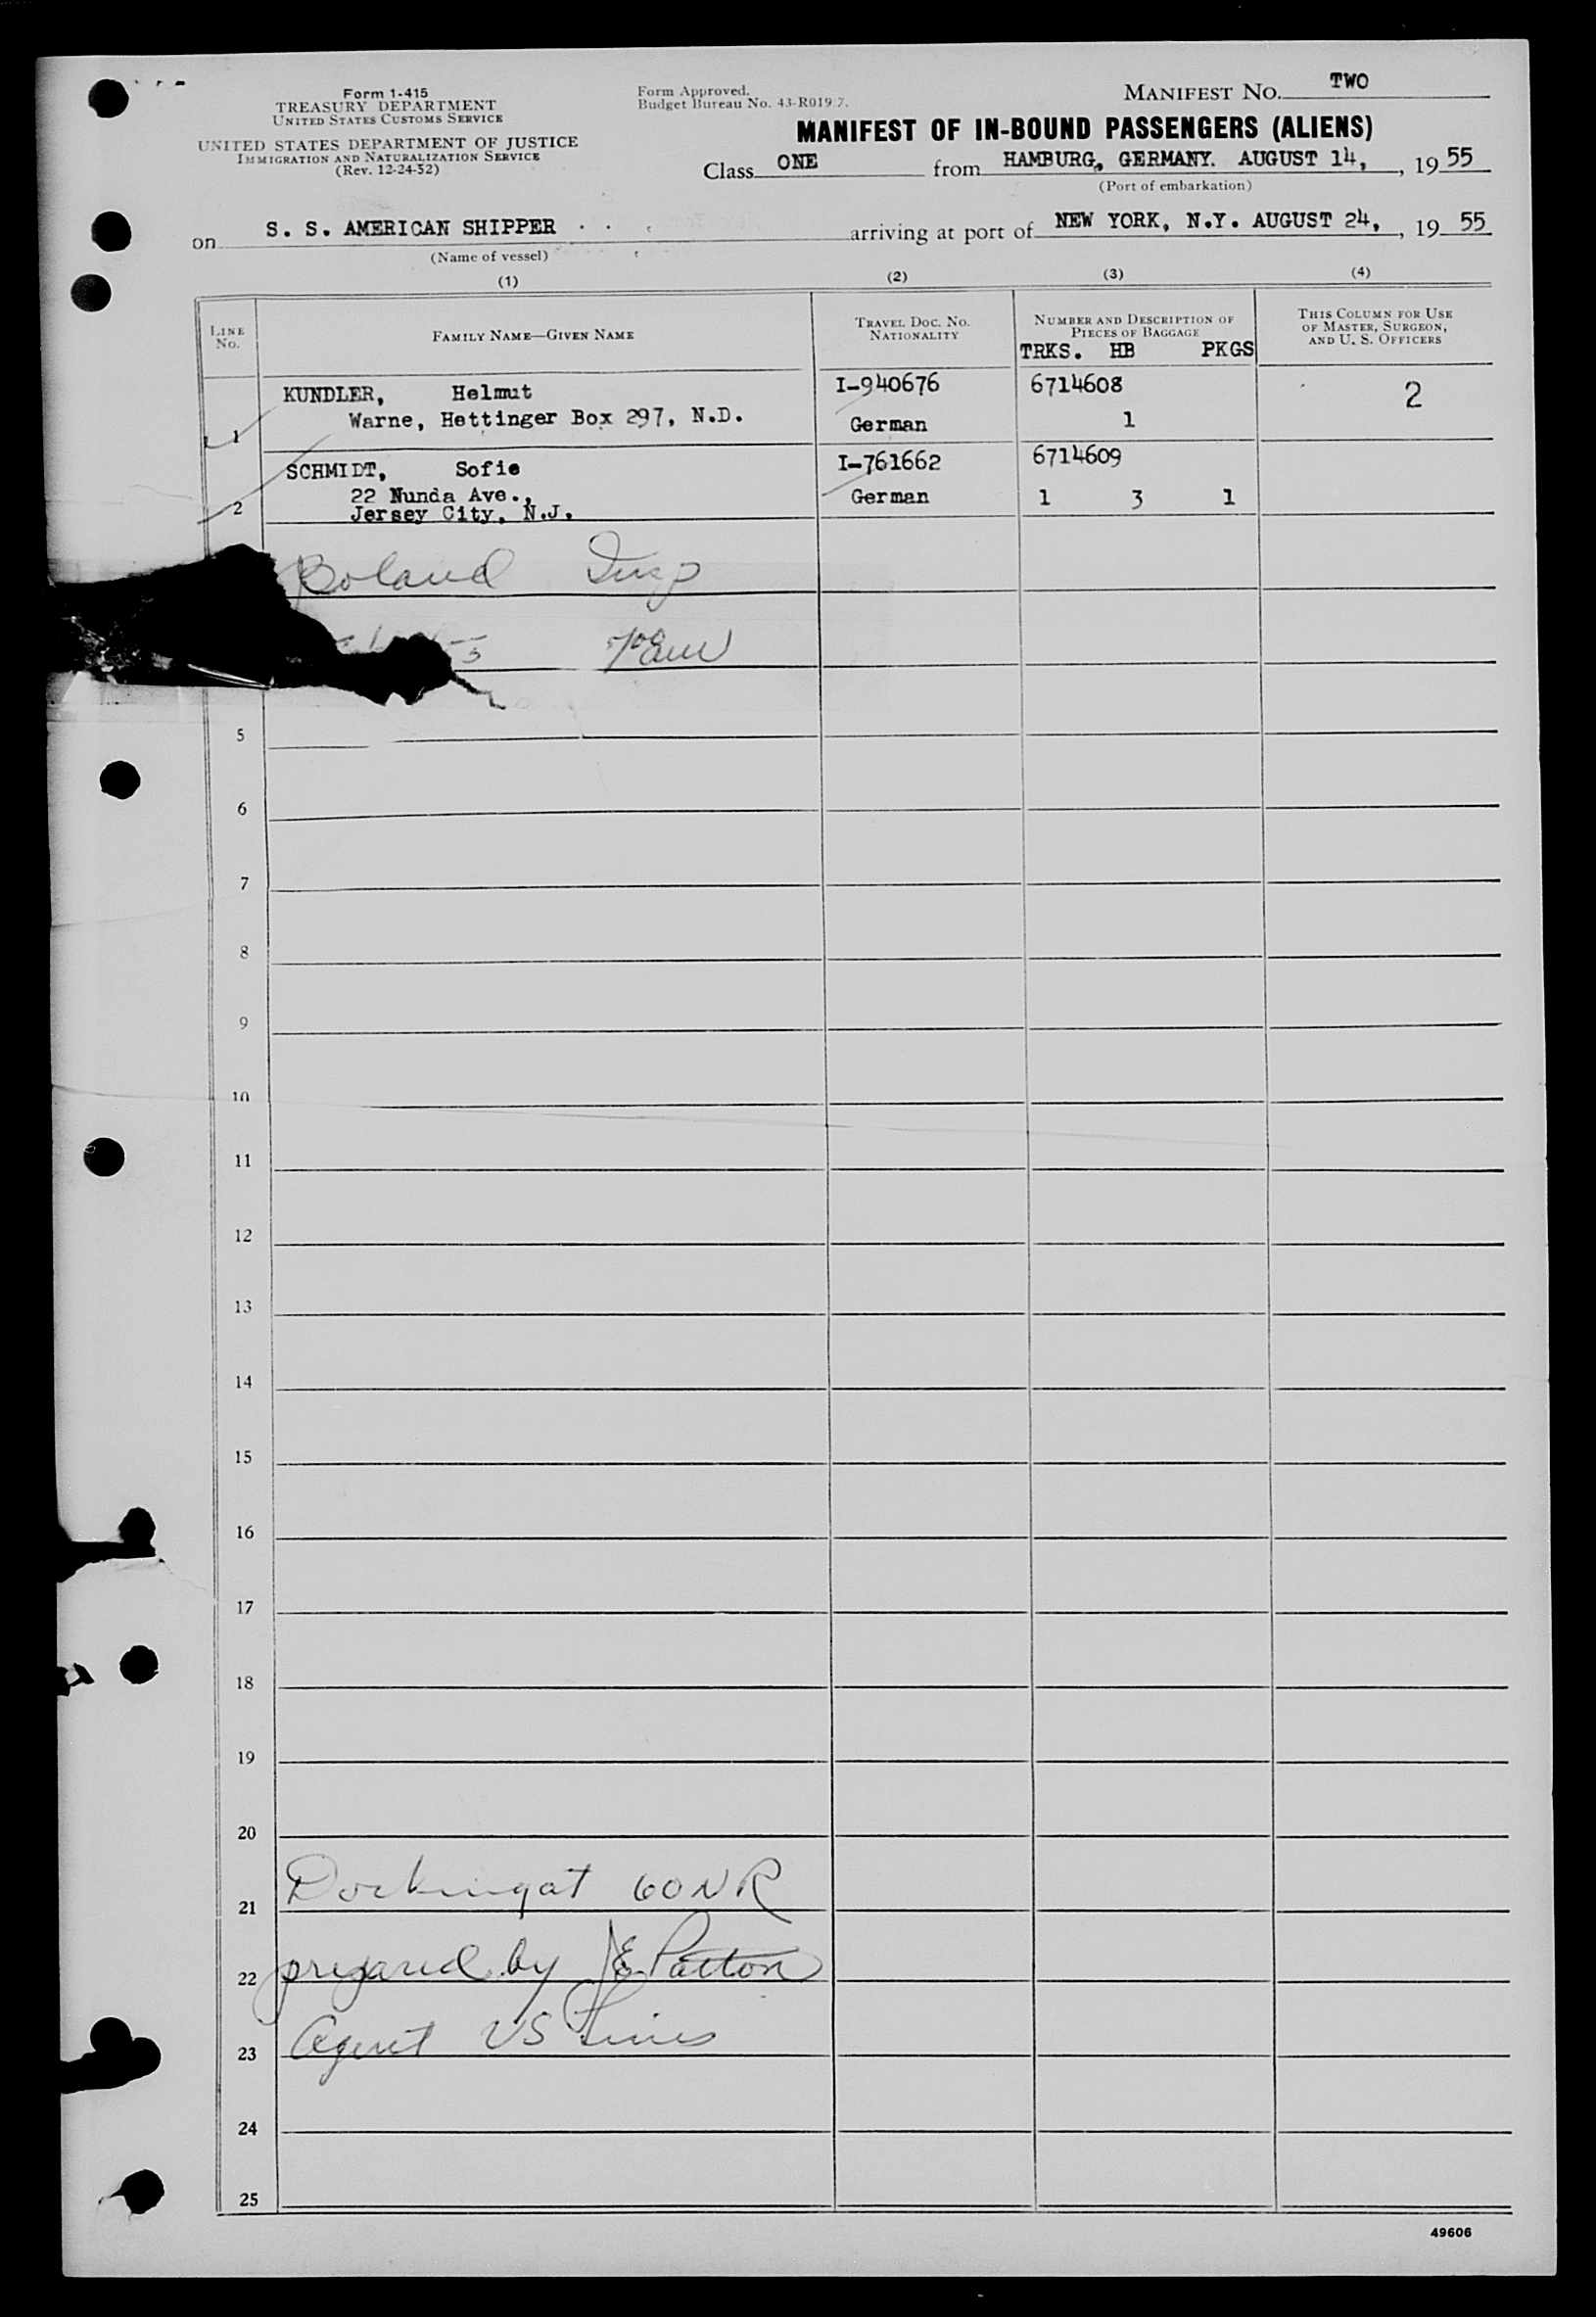 Form I-415
TREASURY DEPARTMENT
UNITED STATES CUSTOMS SERVICE
UNITED STATES DEPARTMENT OF JUSTICE
IMMIGRATION AND NATURALIZATION SERVICE
(Rev. 12-24-52)
Form Approved.
Budget Bureau No. 43-R019.7.
MANIFEST NO. TWO
MANIFEST OF IN-BOUND PASSENGERS (ALIENS)
Class ONE from HAMBURG, GERMANY. AUGUST 14, , 19 55
(Port of embarkation)
on S. S. AMERICAN SHIPPER arriving at port of NEW YORK, N.Y. AUGUST 24, , 19 55
(Name of vessel)
(1) (2) (3) (4)
LINE NO. FAMILY NAME—GIVEN NAME TRAVEL DOC. NO. NATIONALITY NUMBER AND DESCRIPTION OF PIECES OF BAGGAGE THIS COLUMN FOR USE OF MASTER, SURGEON, AND U. S. OFFICERS
TRKS. HB PKGS
KUNDLER, Helmut I-940676 6714608 2
1 Warne, Hettinger Box 297, N.D. German 1
SCHMIDT, Sofie I-761662 6714609
2 22 Nunda Ave., German 1 3 1
Jersey City, N.J.
Boland Insp
5
6
7
8
9
10
11
12
13
14
15
16
17
18
19
20
21 Docking at 60 NR
22 prepared by JE Patton
23 Agent US Lines
24
25
49606